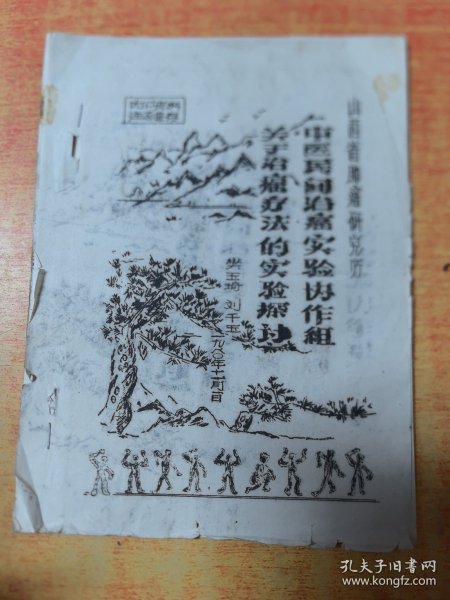 内部资料
注意保存
山西省肿瘤研究所
中医民间治癌实验协作组
关于治癌疗法的实验探讨
柴玉琦 刘千玉
一九八〇年十一月一日
孔夫子旧书网
www.kongfz.com